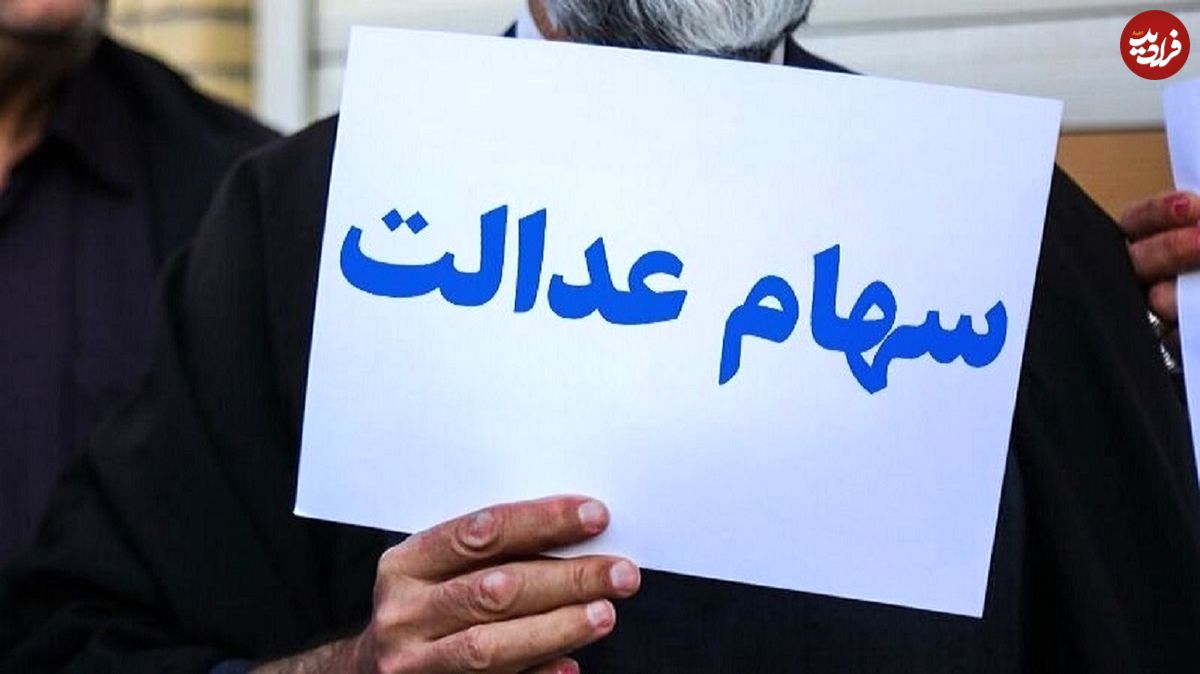 فرادید
سهام عدالت